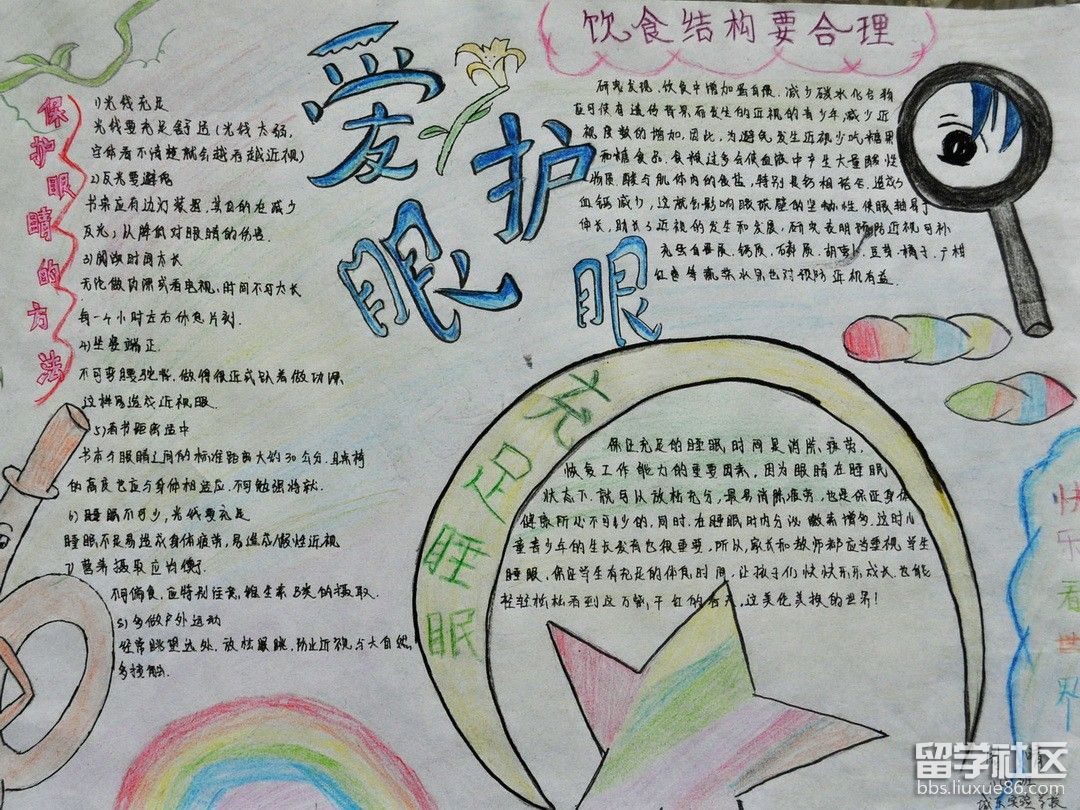 爱护
眼
眼
保护眼睛的方法
1)光线充足
光线要充足舒适(光线太弱,
字体看不清楚就会越看越近视)
2)反光要避免
书桌应有边灯装置,其目的在减少
反光,从降低对眼睛的伤害.
3)阅读时间不长
无论做功课或看电视,时间不可太长
每一个小时左右休息片刻.
4)坐姿端正
不可弯腰驼背,做得很近或趴着做功课
这样易造成近视眼.
5)看书距离适中
书本与眼睛之间的标准距离大约30公分,且桌椅
的高度也应与身体相适应,不可勉强将就.
6)睡眠不可少,光线要充足
睡眠不足易造成身体疲劳,易造成假性近视
7)营养摄取应均衡
不偏食,应特别注意,维生素B类的摄取.
8)多做户外运动
经常眺望远处,放松眼睛,防止近视,与大自然
多接触.
饮食结构要合理
研究发现,饮食中增加蛋白质,减少碳水化合物
而糖食品.食糖过多会使血液中产生大量酸性
物质,酸与肌体内的食盐,特别是钙相结合,造成
血钙减少,这就会影响眼球壁的坚韧性,使眼轴易于
伸长,助长了近视的发生和发展,研究表明预防近视可补
充蛋白质、钙质、磷质、胡萝卜、豆芽、橘子、广柑
红枣等蔬菜水果也对预防近视有益.
充足睡眠
保证充足的睡眠时间是消除疲劳,
恢复工作能力的重要因素,因为眼睛在睡眠
状态下,就可从放松充分,最易消除疲劳,也是保证身体
健康所必不可少的,同时,在睡眠时内分泌激素增多,这时儿
童青少年的生长发育也很重要,所从,家长和教师都应当重视学生
睡眠,保证学生有充足的休息时间,让孩子们快快乐乐成长,也能
轻轻松松看到这万紫千红的春天,这美伦美换的世界!
快乐看世界
留学社区
bbs.liuxue86.com